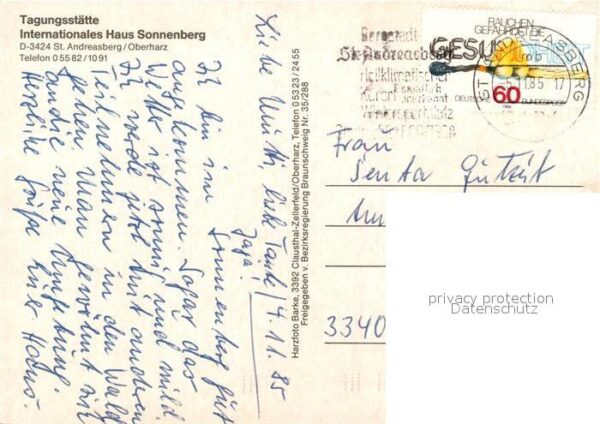 Tagungsstätte
Internationales Haus Sonnenberg
D-3424 St. Andreasberg/Oberharz
Telefon 0 55 82 / 10 91
Liebe Tante
4.11.85
Ich bin im Sonnenberg gut
angekommen. Sogar das
Wetter ist sonnig und mild.
Ich werde jetzt mit anderen
Teilnehmern in den Wald
gehen. Man gewöhnt sich
an die neue Umgebung.
Herzliche Grüße Euer
Harzfoto Barke, 3392 Clausthal-Zellerfeld/Oberharz, Telefon 0 53 23 / 24 55
Freigegeben v. Bezirksregierung Braunschweig Nr. 35/288
Bergstadt
St. Andreasberg
Heilklimatischer
Kurort
RAUCHEN
GEFÄHRDET DIE
GESUNDHEIT
60
DEUTSCHE BUNDESPOST
Frau
Senta Gutzeit
3340
privacy protection
Datenschutz